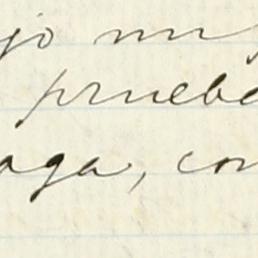 jo mu
prueba
aga, con